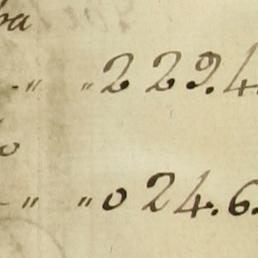 ba
-〃 〃229.4.
o
-〃 〃024.6.